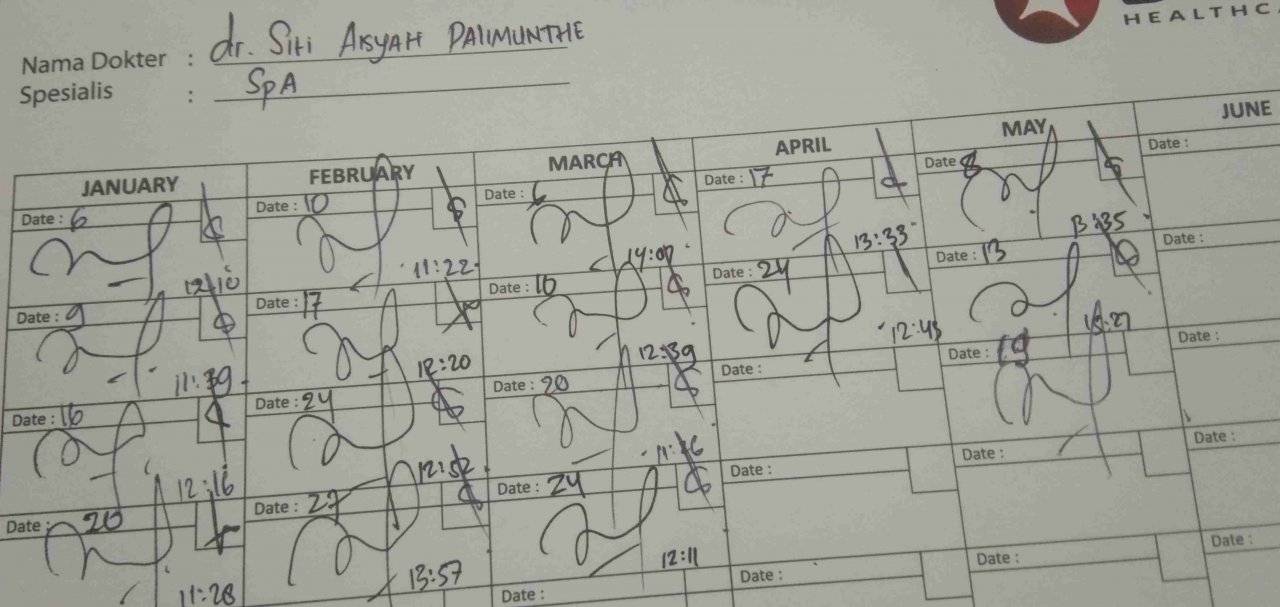 HEALTHC
Nama Dokter : dr. Siti AISYAH PALIMUNTHE
Spesialis : SpA
JANUARY FEBRUARY MARCH APRIL MAY JUNE
Date : 6 Date : 10 Date : 6 Date : 17 Date : 8 Date :
12:10 11:22 14:07 13:33 13:35
Date : 9 Date : 17 Date : 16 Date : 24 Date : 13 Date :
11:39 12:20 12:39 12:45
Date : 16 Date : 24 Date : 20 Date : Date : 19 Date :
12:16 12:52
Date : 20 Date : 27 Date : 24 Date : Date : Date :
11:28 13:57 12:11
Date : Date : Date : Date :